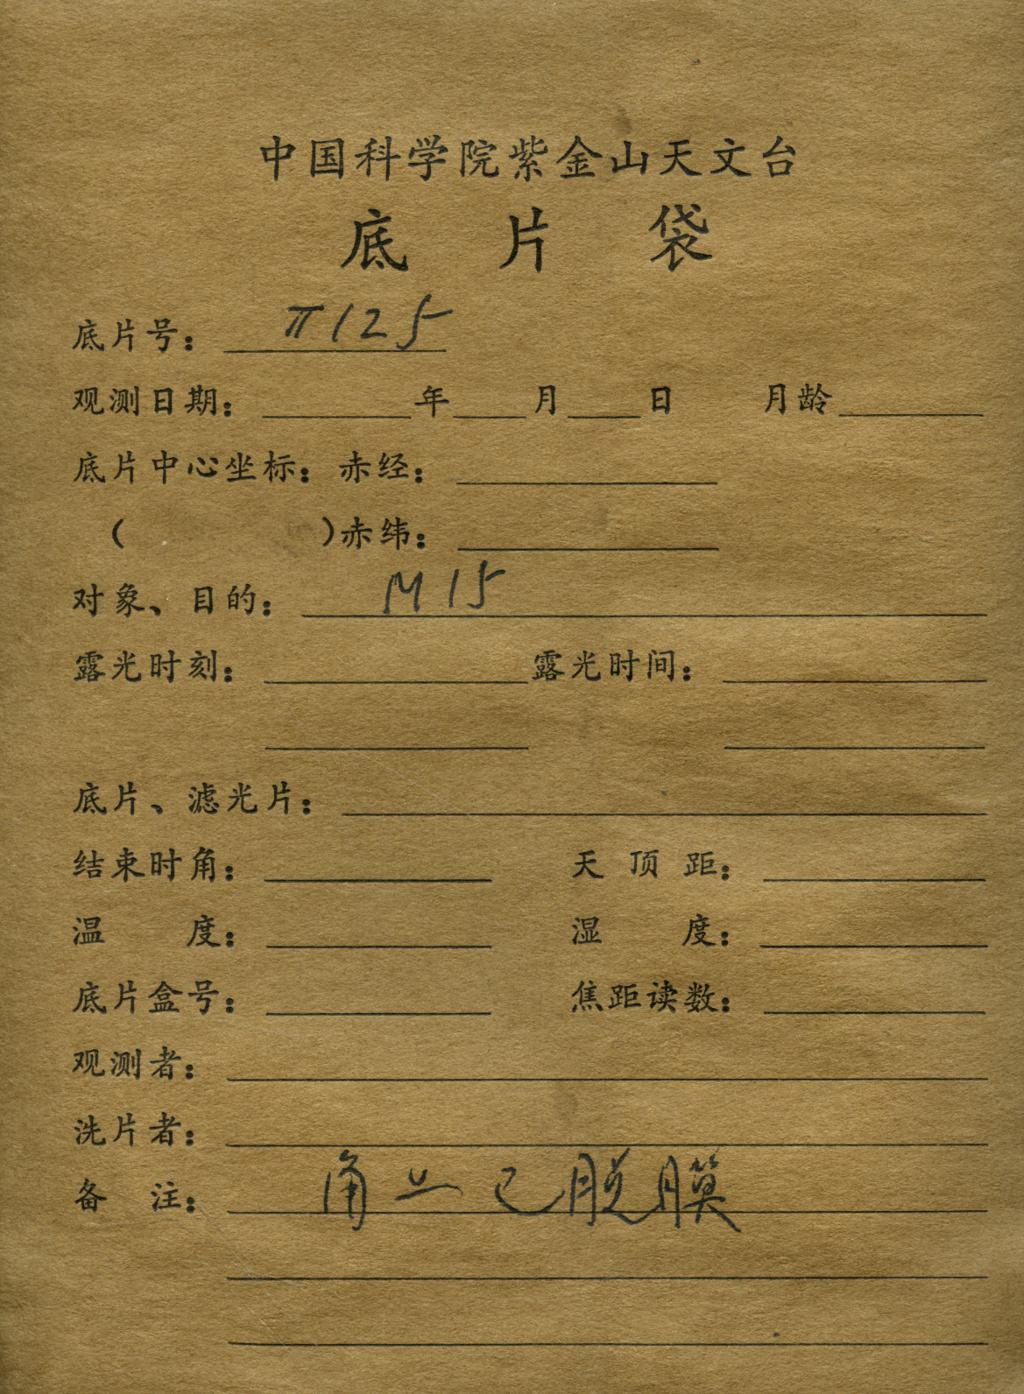 中国科学院紫金山天文台
底片袋
底片号： π125
观测日期： 年 月 日 月龄
底片中心坐标：赤经：
（ ）赤纬：
对象、目的： M15
露光时刻： 露光时间：
底片、滤光片：
结束时角： 天顶距：
温度： 湿度：
底片盒号： 焦距读数：
观测者：
洗片者：
备注： 角上已脱膜